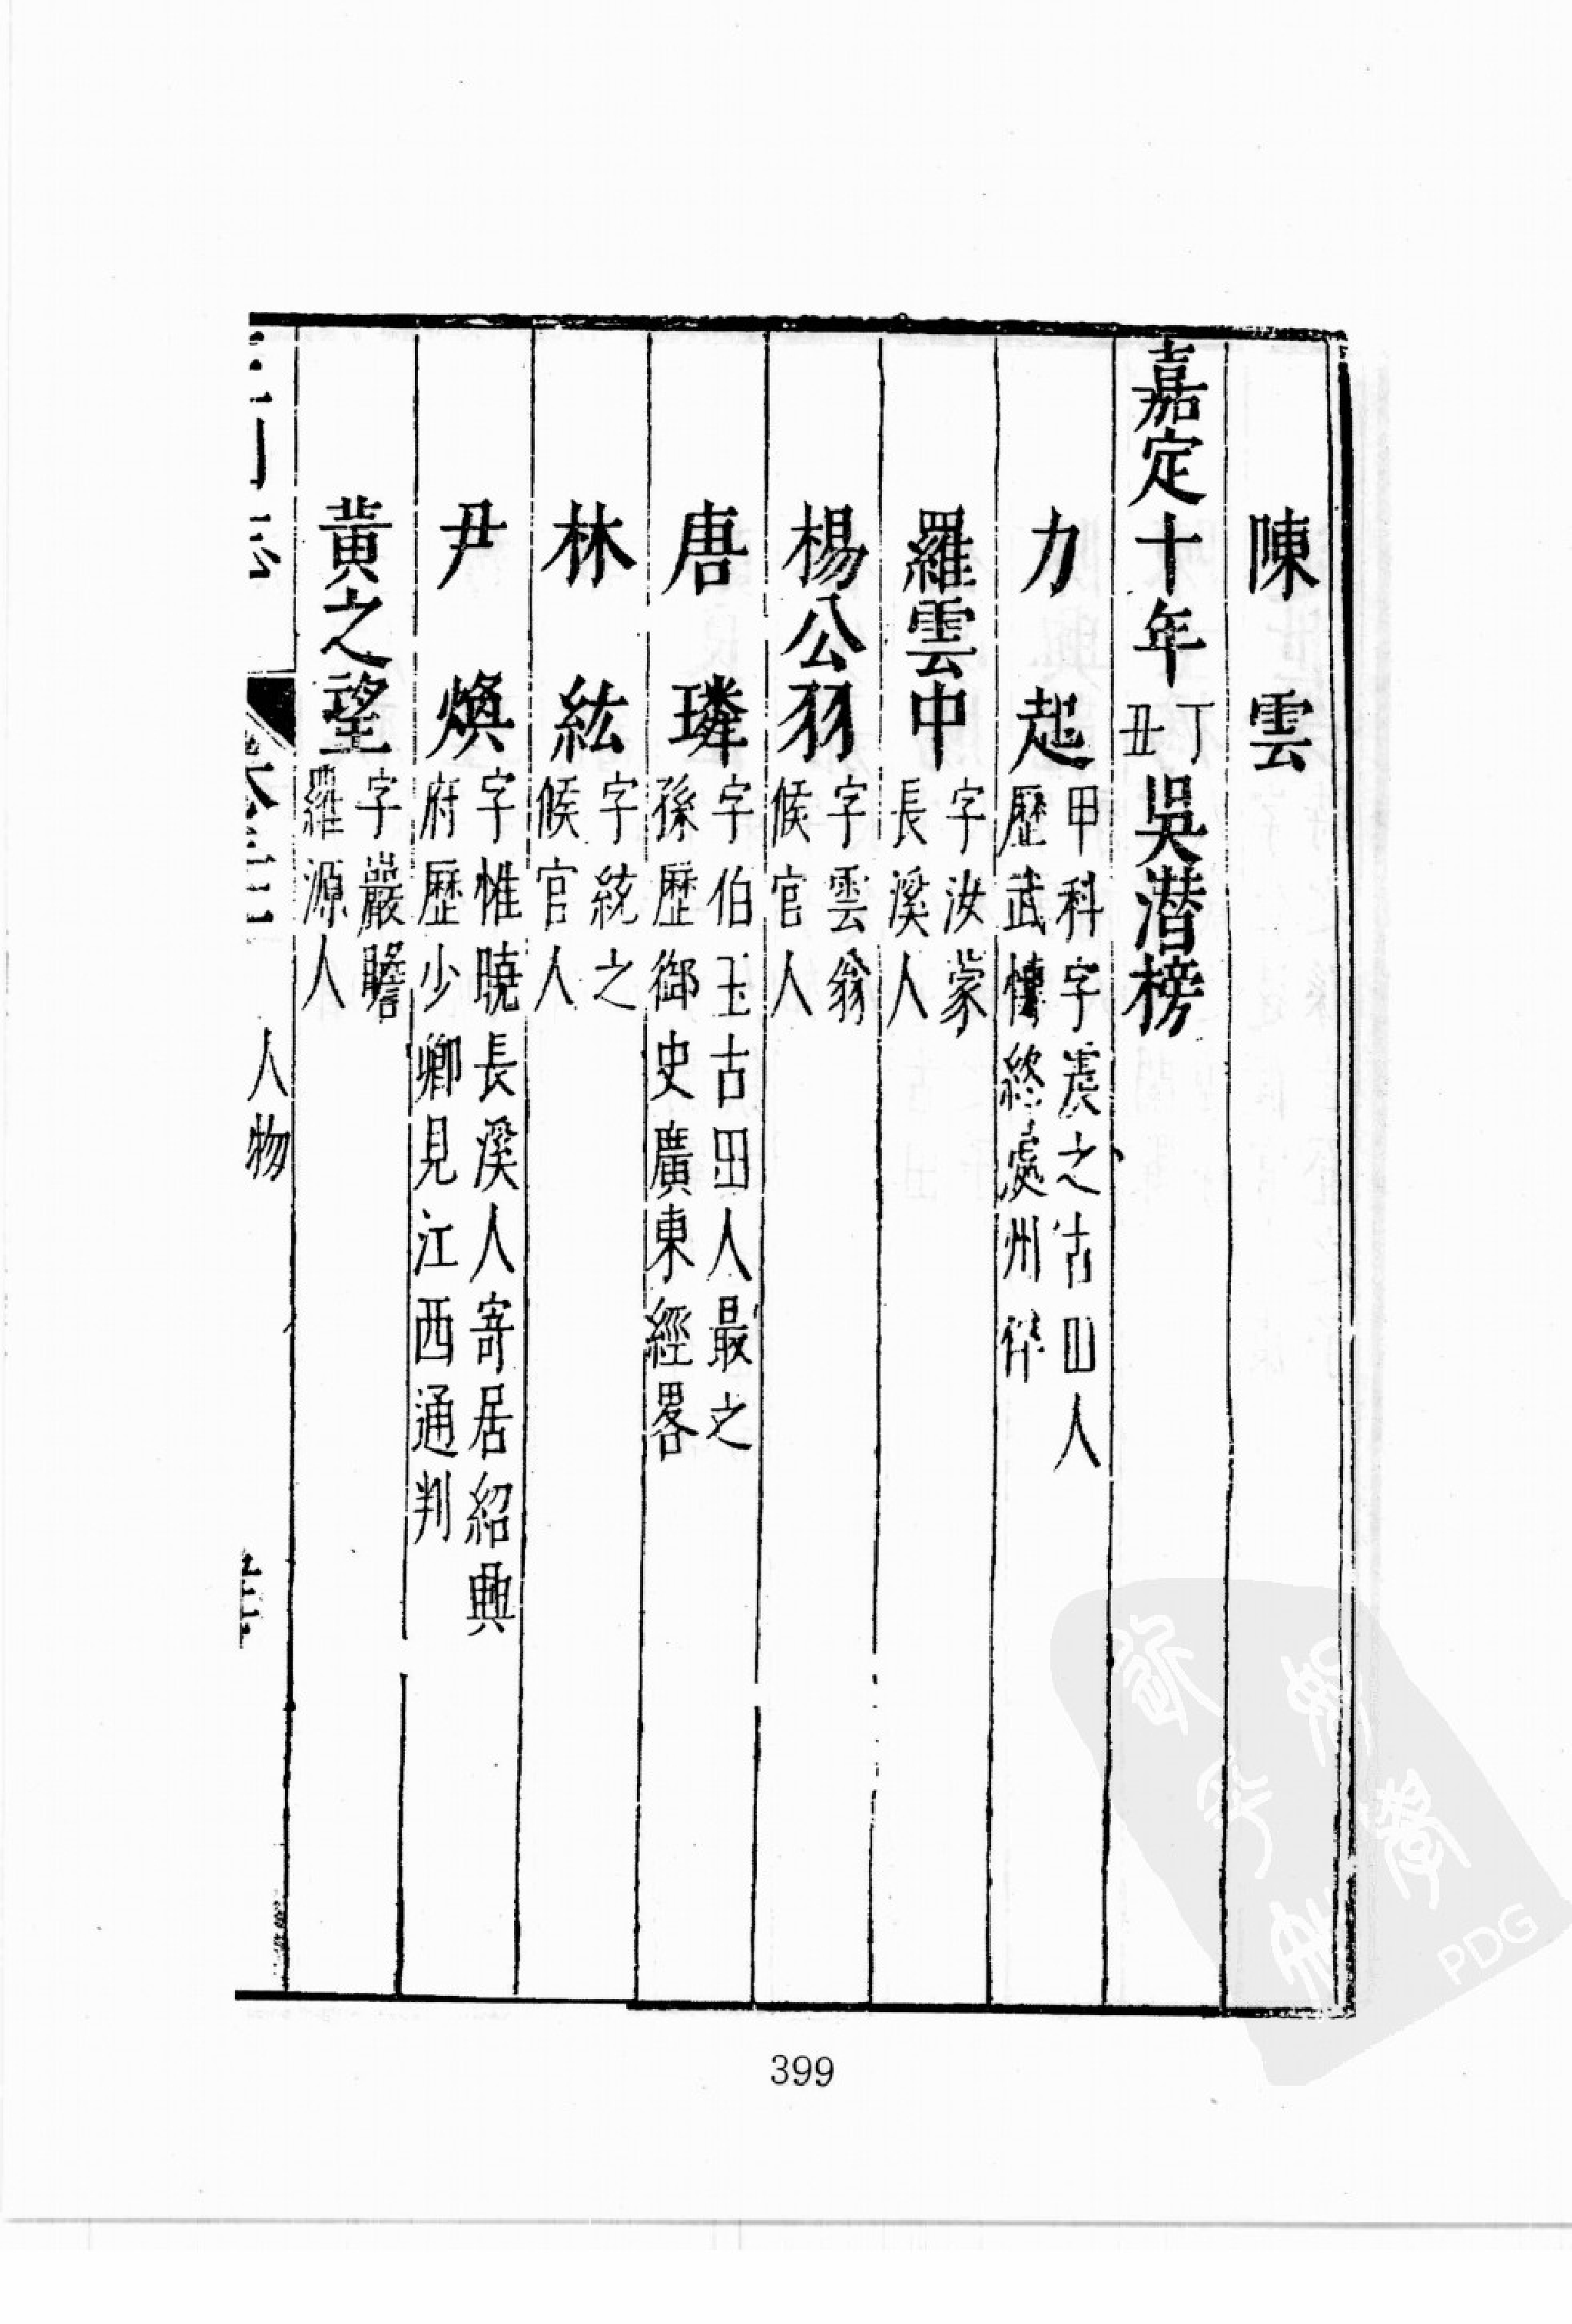 陳　雲
嘉定十年丁丑吳潛榜
力　起甲科字震之古田人
歷武博終處州倅
羅雲中字汝蒙
長溪人
楊公羽字雲翁
候官人
唐　璘字伯玉古田人最之
孫歷御史廣東經畧
林　紘字統之
候官人
尹　煥字惟曉長溪人寄居紹興
府歷少卿見江西通判
黃之望字巖瞻
羅源人
人物
399
PDG